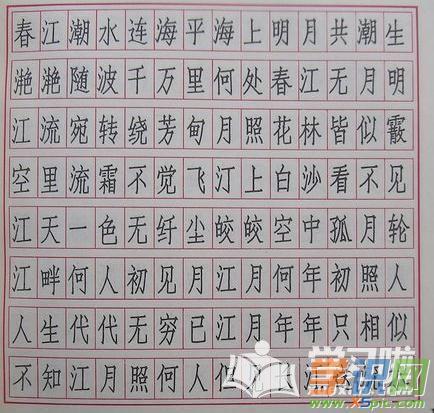 春江潮水连海平海上明月共潮生
滟滟随波千万里何处春江无月明
江流宛转绕芳甸月照花林皆似霰
空里流霜不觉飞汀上白沙看不见
江天一色无纤尘皎皎空中孤月轮
江畔何人初见月江月何年初照人
人生代代无穷已江月年年只相似
不知江月照何人但见江
学习啦
学识网